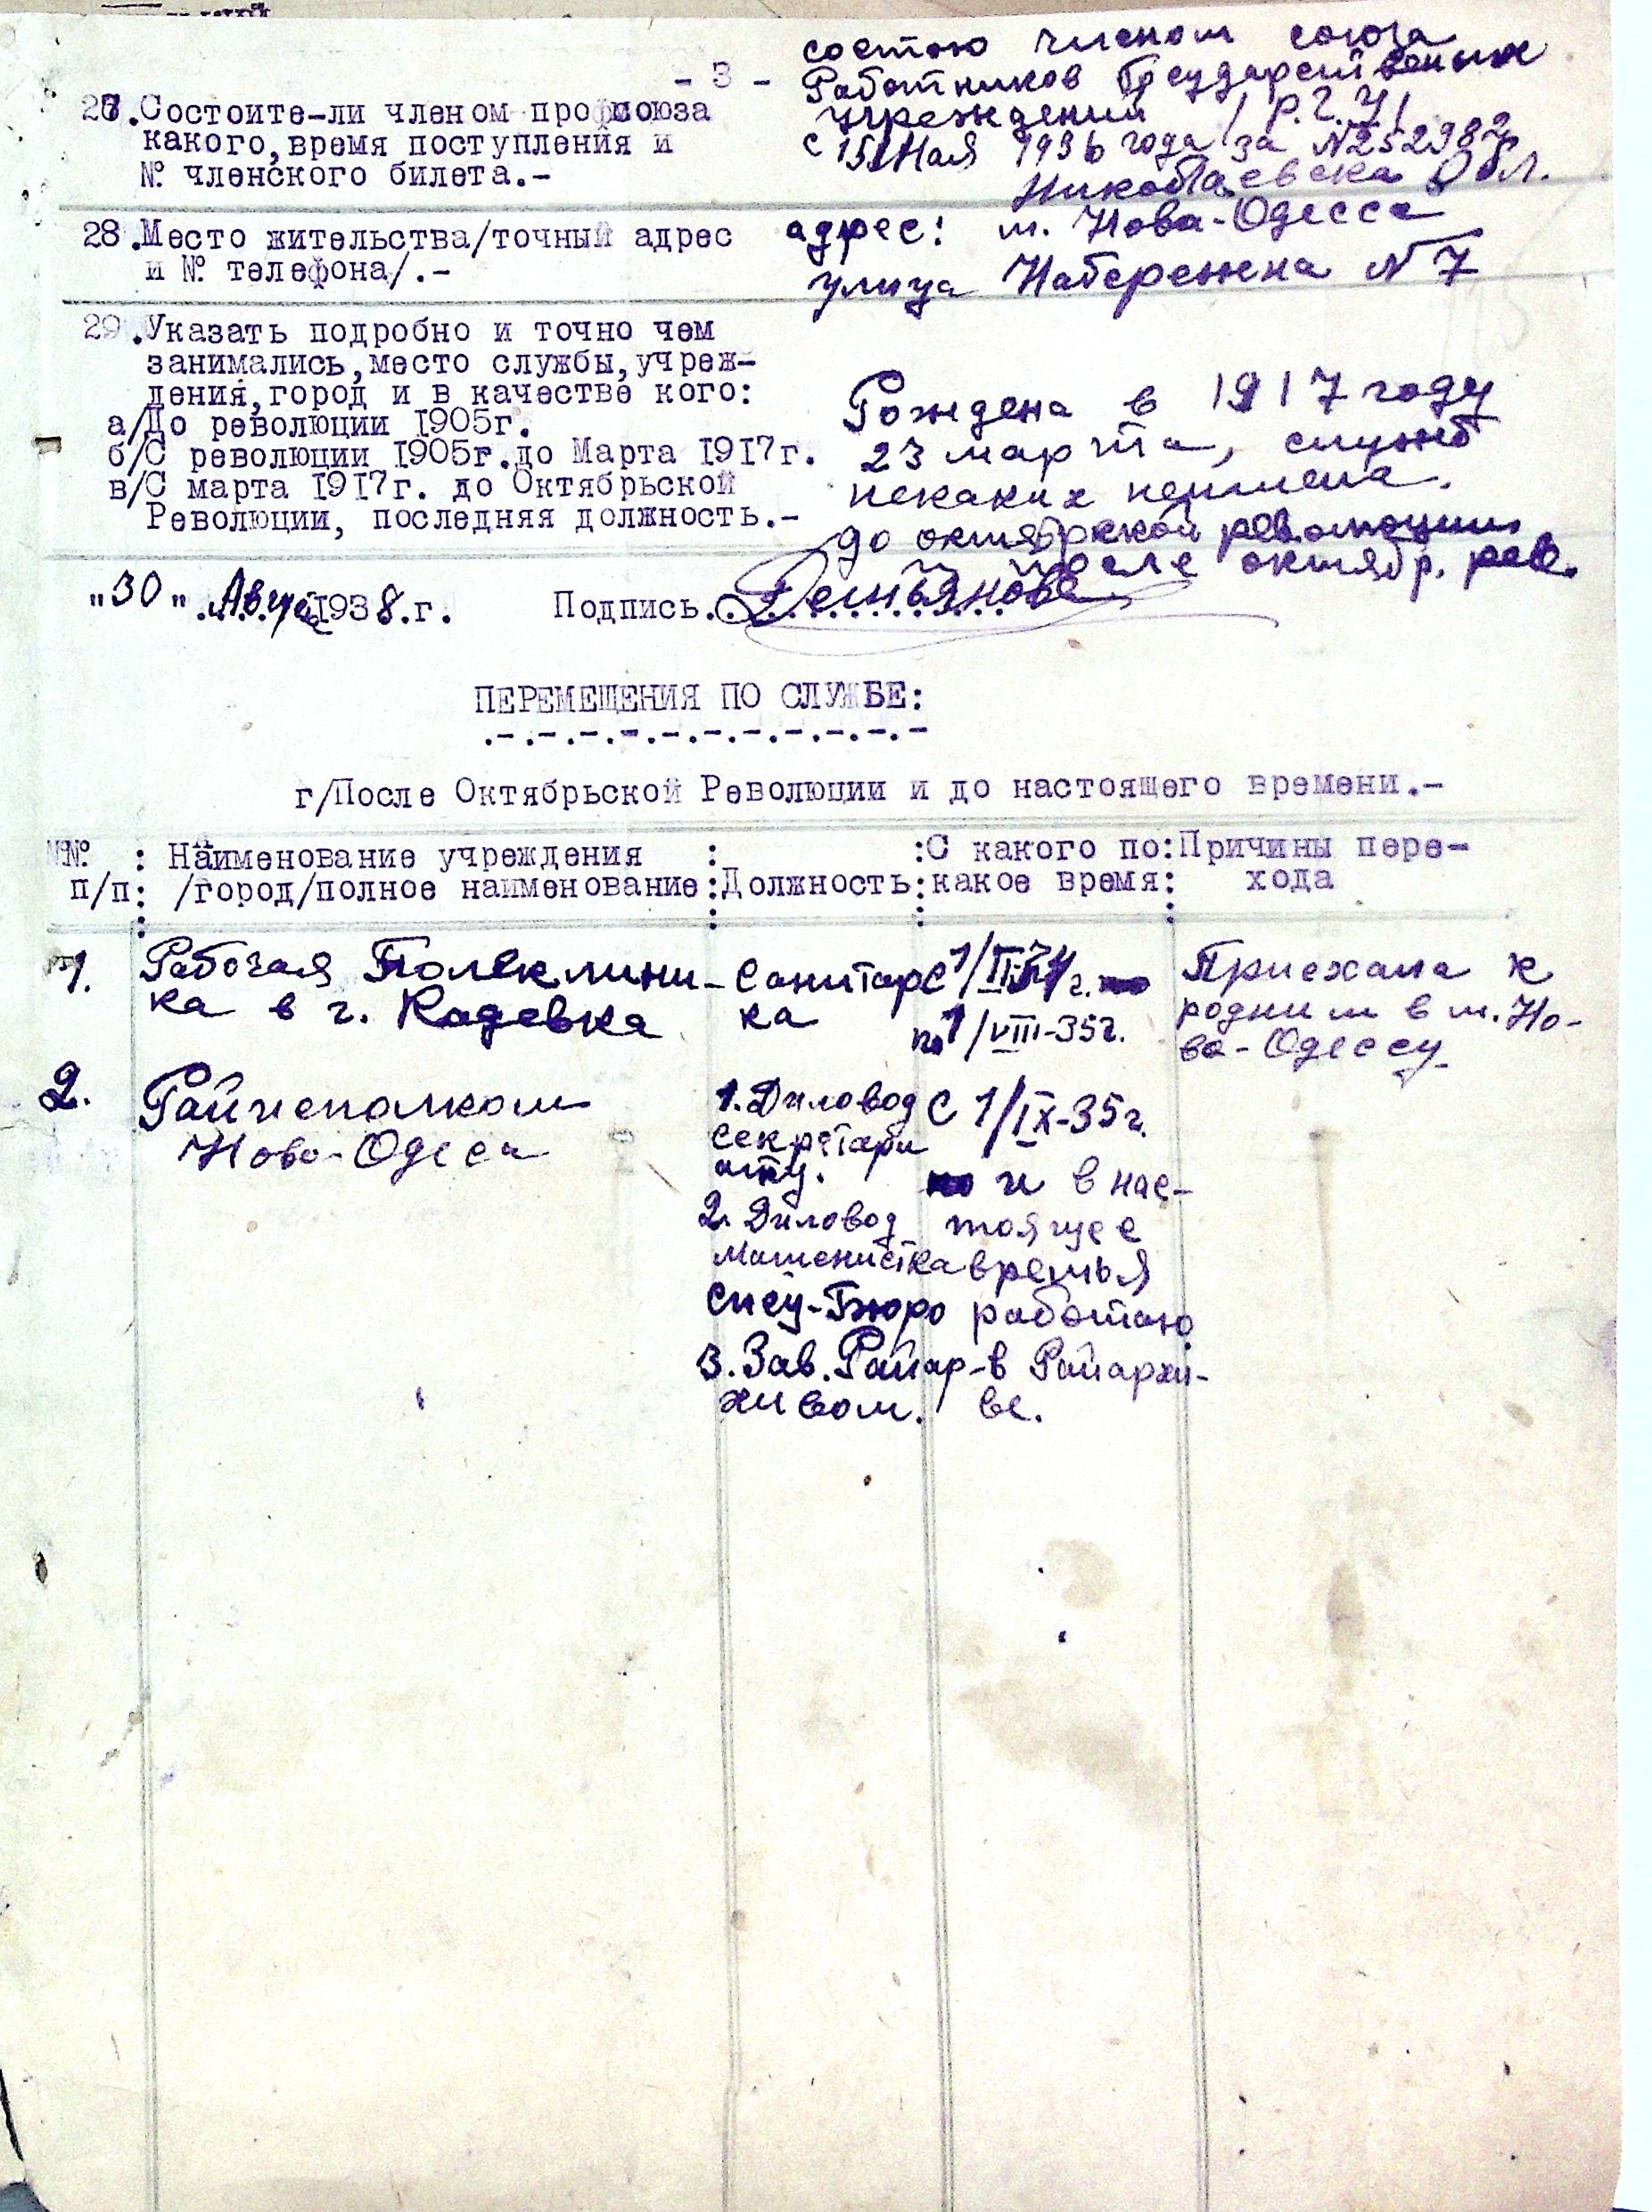 - 3 -
27. Состоите-ли членом профсоюза
какого, время поступления и
№ членского билета.-
состою членом союза
Работников Государственных
учреждений /Р.Г.У/
с 15/Мая 1936 года за №252982
Николаевска Обл.
28. Место жительства/точный адрес
и № телефона/.-
адрес: м. Нова-Одесса
улица Набережна №7
29. Указать подробно и точно чем
занимались, место службы, учреж-
дения, город и в качестве кого:
а/До революции 1905г.
б/С революции 1905г. до Марта 1917г.
в/С марта 1917г. до Октябрьской
Революции, последняя должность.-
Рождена в 1917 году
23 марта, служб
некаких неимела.
до октябрской революции
и после октябр. рев.
"30" Август 1938.г. Подпись. Демьянова
ПЕРЕМЕЩЕНИЯ ПО СЛУЖБЕ:
г/После Октябрьской Революции и до настоящего времени.-
№№ : Наименование учреждения : :С какого по:Причины пере-
п/п: /город/полное наименование:Должность:какое время: хода
1. Рабочая Полеклини- Санитар с 1/II-34г. Приехала к
ка в г. Кадевка ка по 1/VIII-35г. родним в м. Но-
ва-Одессу
2. Райисполком 1. Діловод с 1/IX-35г.
Ново-Одеса секретари
ату. и в нас-
2. Діловод тоящее
машенистка времья
спец-Бюро работаю
3. Зав. Райар- в Райархи-
хивом. ве.